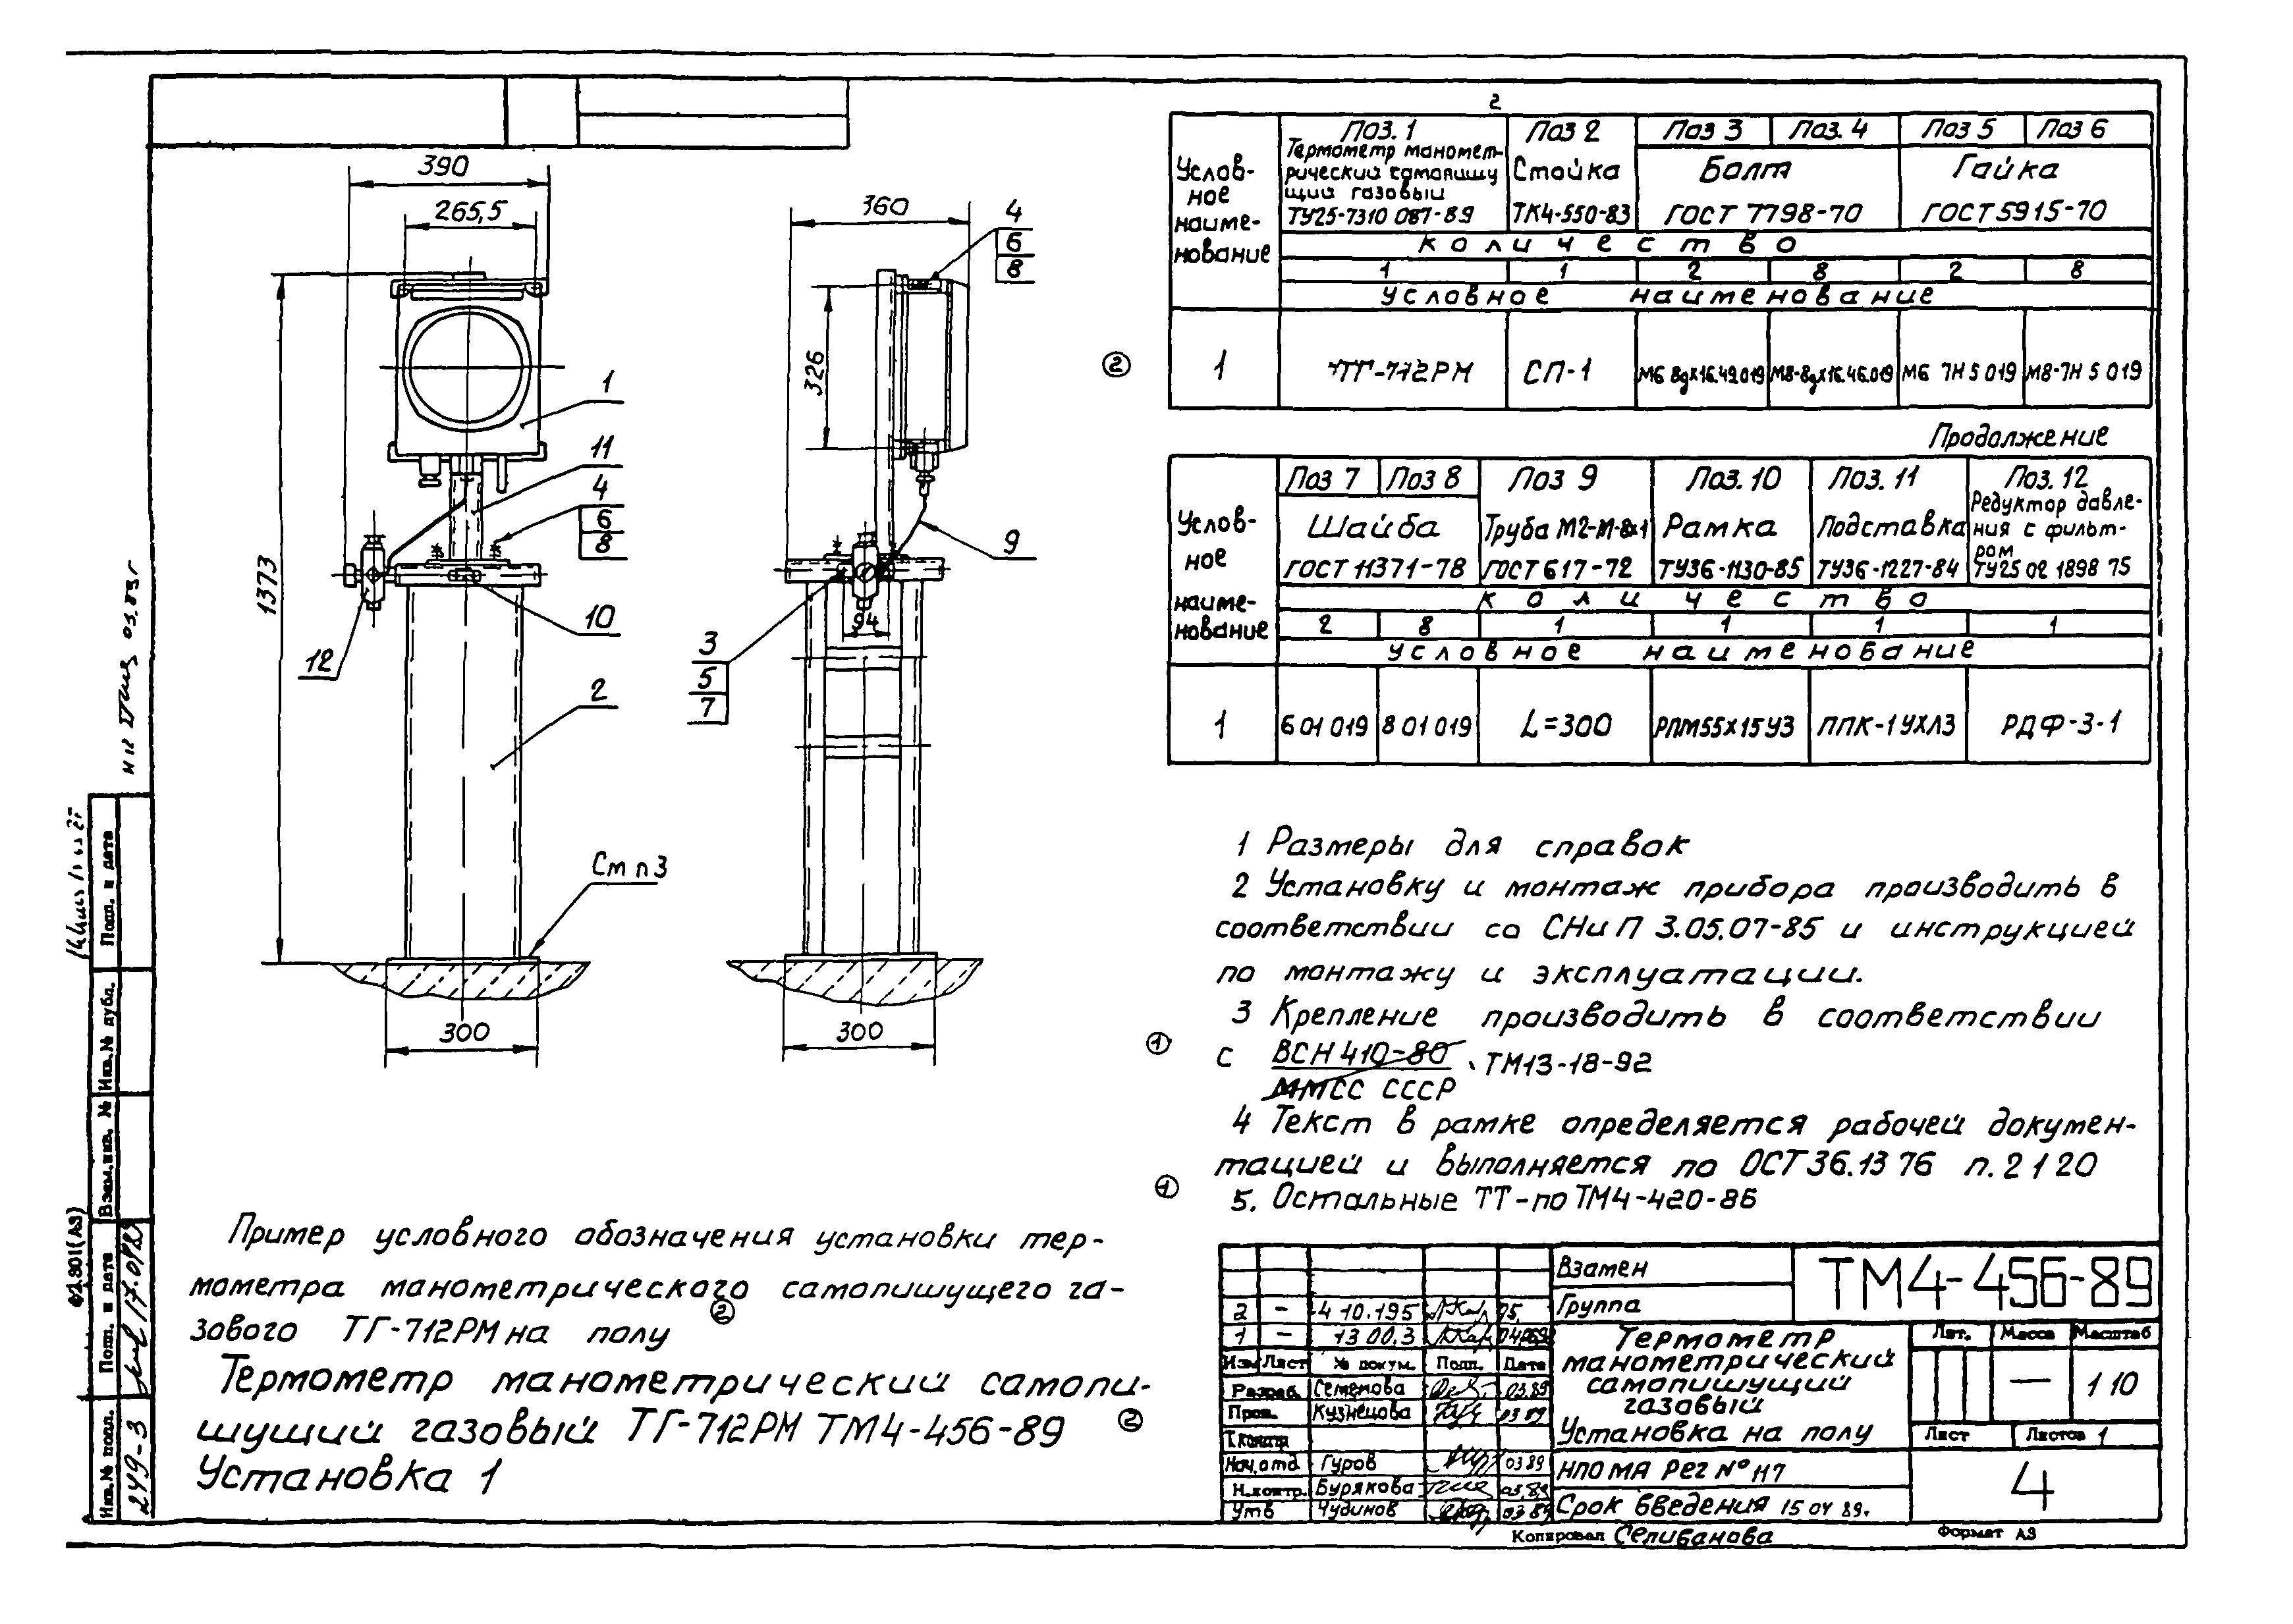 390
265,5
1373
1
11
4
6
8
10
12
2
См п3
300
360
4
6
8
326
9
94
3
5
7
300
2
Услов-
ное
наиме-
нование
Поз. 1
Термометр маномет-
рический самопишу
щий газовый
ТУ25-7310 087-89
Поз 2
Стойка
ТК4-550-83
Поз 3
Поз. 4
Болт
ГОСТ 7798-70
Поз 5
Поз 6
Гайка
ГОСТ 5915-70
количество
1 1 2 8 2 8
условное наименование
2
1
ТГ-712РМ
СП-1
М6 8gх16.49.019
М8-8gх16.46.019
М6 7Н 5 019
М8-7Н 5 019
Продолжение
Услов-
ное
наиме-
нование
Поз 7
Поз 8
Шайба
ГОСТ 11371-78
Поз 9
Труба М2-М-8х1
ГОСТ 617-72
Поз. 10
Рамка
ТУ36-1130-85
Поз. 11
Подставка
ТУ36-1227-84
Поз. 12
Редуктор давле-
ния с фильт-
ром
ТУ25 02 1898 75
количество
2 8 1 1 1 1
условное наименование
1
6 01 019
8 01 019
L=300
РПМ55х15У3
ППК-1УХЛ3
РДФ-3-1
1 Размеры для справок
2 Установку и монтаж прибора производить в
соответствии со СНиП 3.05.07-85 и инструкцией
по монтажу и эксплуатации.
3 Крепление производить в соответствии
1
с ВСН 410-80
ММСС СССР
ТМ13-18-92
4 Текст в рамке определяется рабочей докумен-
тацией и выполняется по ОСТ 36.13 76 п. 2 1 20
1
5. Остальные ТТ-по ТМ4-420-86
Пример условного обозначения установки тер-
мометра манометрического самопишущего га-
2
зового ТГ-712РМ на полу
Термометр манометрический самопи-
шущий газовый ТГ-712РМ ТМ4-456-89
2
Установка 1
Подп. и дата
Инв.№ дубл.
Взам.инв. №
Подп. и дата
Инв.№ подл.
249-3
2 - 4 10.195
1 - 13 00.3
Изм Лист № докум. Подп. Дата
Разраб. Семенова 03.89
Пров. Кузнецова 03 89
Т.контр
Нач.отд Гуров 03 89
Н.контр. Бурякова 03.89
Утв Чудинов 03 89
Взамен
Группа
ТМ4-456-89
Термометр
манометрический
самопишущий
газовый
Установка на полу
Лит. Масса Масштаб
— 1 10
Лист Листов 1
НПО МА Рег № 117
Срок введения 15 04 89.
4
Копировал Селиванова
Формат А3